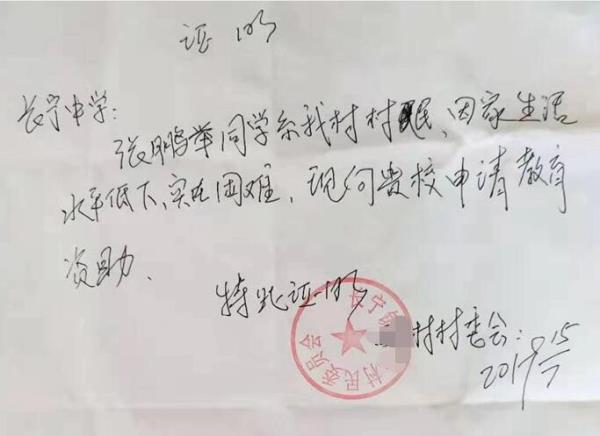 证明
长宁中学:
张鹏举同学系我村村民、因家生活
水平低下、实在困难、现向贵校申请教育
资助、
特此证明
村村委会:
2017
长宁
村民委员会